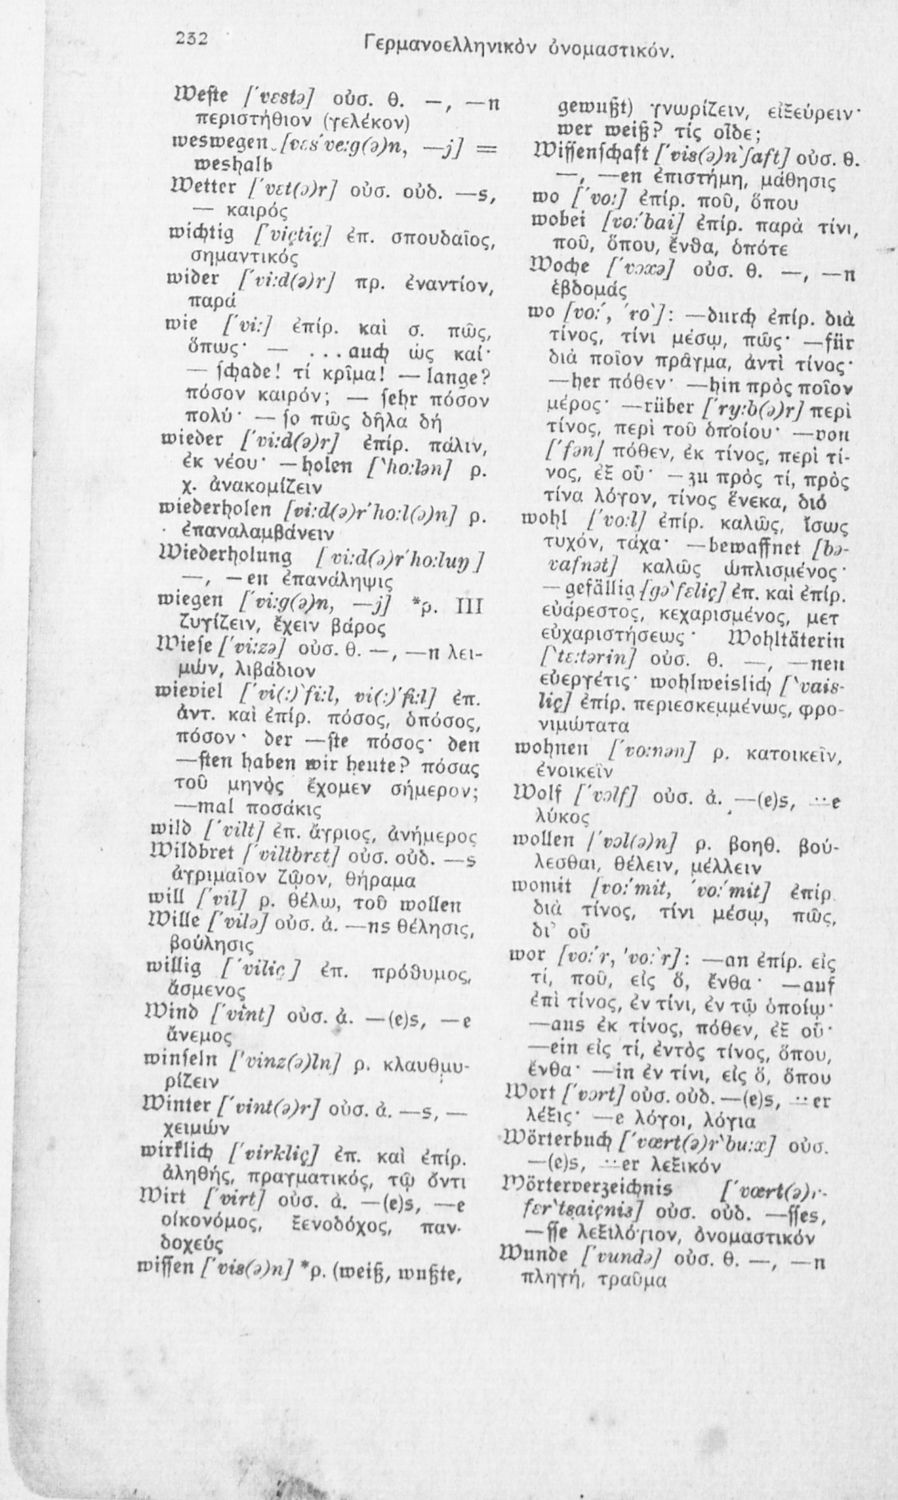 232
Γερμανοελληνικὸν ὀνομαστικόν.
Weste ['vɛstə] οὐσ. θ. —, —n
περιστήθιον (γελέκον)
weswegen [vɛs've:g(ə)n, —j] =
weshalb
Wetter ['vɛt(ə)r] οὐσ. οὐδ. —s,
— καιρός
wichtig ['viçtiç] ἐπ. σπουδαῖος,
σημαντικός
wider ['vi:d(ə)r] πρ. ἐναντίον,
παρά
wie ['vi:] ἐπίρ. καὶ σ. πῶς,
ὅπως· — ...auch ὡς καί·
— schade! τί κρῖμα! — lange?
πόσον καιρόν; — sehr πόσον
πολύ· — so πῶς δῆλα δή
wieder ['vi:d(ə)r] ἐπίρ. πάλιν,
ἐκ νέου· — holen ['ho:lən] ρ.
χ. ἀνακομίζειν
wiederholen [vi:d(ə)r'ho:l(ə)n] ρ.
ἐπαναλαμβάνειν
Wiederholung [vi:d(ə)r'ho:luŋ]
—, —en ἐπανάληψις
wiegen ['vi:g(ə)n, —j] *ρ. III
ζυγίζειν, ἔχειν βάρος
Wiese ['vi:zə] οὐσ. θ. —, —n λει-
μών, λιβάδιον
wieviel ['vi(:)'fi:l, vi(:)'fi:l] ἐπ.
ἀντ. καὶ ἐπίρ. πόσος, ὁπόσος,
πόσον· der —ste πόσος· den
—sten haben wir heute? πόσας
τοῦ μηνὸς ἔχομεν σήμερον;
—mal ποσάκις
wild ['vilt] ἐπ. ἄγριος, ἀνήμερος
Wildbret ['viltbrɛt] οὐσ. οὐδ. —s
ἀγριμαῖον ζῶον, θήραμα
will ['vil] ρ. θέλω, τοῦ wollen
Wille ['vilə] οὐσ. ἀ. —ns θέλησις,
βούλησις
willig ['viliç] ἐπ. πρόθυμος,
ἄσμενος
Wind ['vint] οὐσ. ἀ. —(e)s, —e
ἄνεμος
winseln ['vinz(ə)ln] ρ. κλαυθμυ-
ρίζειν
Winter ['vint(ə)r] οὐσ. ἀ. —s, —
χειμών
wirklich ['virkliç] ἐπ. καὶ ἐπίρ.
ἀληθής, πραγματικός, τῷ ὄντι
Wirt ['virt] οὐσ. ἀ. —(e)s, —e
οἰκονόμος, ξενοδόχος, παν-
δοχεύς
wissen ['vis(ə)n] *ρ. (weiß, wußte,
gewußt) γνωρίζειν, εἰξεύρειν·
wer weiß? τίς οἶδε;
Wissenschaft ['vis(ə)n'ʃaft] οὐσ. θ.
—, —en ἐπιστήμη, μάθησις
wo ['vo:] ἐπίρ. ποῦ, ὅπου
wobei [vo:'bai] ἐπίρ. παρὰ τίνι,
ποῦ, ὅπου, ἔνθα, ὁπότε
Woche ['vɔxə] οὐσ. θ. —, —n
ἑβδομάς
wo [vo:', 'ro']: —durch ἐπίρ. διὰ
τίνος, τίνι μέσῳ, πῶς· —für
διὰ ποῖον πρᾶγμα, ἀντὶ τίνος·
—her πόθεν· —hin πρὸς ποῖον
μέρος· —rüber ['ry:b(ə)r] περὶ
τίνος, περὶ τοῦ ὁποίου· —von
['fən] πόθεν, ἐκ τίνος, περὶ τί-
νος, ἐξ οὗ· —zu πρὸς τί, πρὸς
τίνα λόγον, τίνος ἕνεκα, διό
wohl ['vo:l] ἐπίρ. καλῶς, ἴσως
τυχόν, τάχα· —bewaffnet [bə-
vafnət] καλῶς ὡπλισμένος·
—gefällig [gə'fɛliç] ἐπ. καὶ ἐπίρ.
εὐάρεστος, κεχαρισμένος, μετ
εὐχαριστήσεως· Wohltäterin
['tɛ:tərin] οὐσ. θ. —, —nen
εὐεργέτις· wohlweislich ['vais-
liç] ἐπίρ. περιεσκεμμένως, φρο-
νιμώτατα
wohnen ['vo:nən] ρ. κατοικεῖν,
ἐνοικεῖν
Wolf ['vɔlf] οὐσ. ἀ. —(e)s, ⸚e
λύκος
wollen ['vɔl(ə)n] ρ. βοηθ. βού-
λεσθαι, θέλειν, μέλλειν
womit [vo:'mit, 'vo:'mit] ἐπίρ.
διὰ τίνος, τίνι μέσῳ, πῶς,
δι' οὗ
wor [vo:'r, 'vo:'r]: —an ἐπίρ. εἰς
τί, ποῦ, εἰς ὅ, ἔνθα· —auf
ἐπὶ τίνος, ἐν τίνι, ἐν τῷ ὁποίῳ·
—aus ἐκ τίνος, πόθεν, ἐξ οὗ·
—ein εἰς τί, ἐντὸς τίνος, ὅπου,
ἔνθα· —in ἐν τίνι, εἰς ὅ, ὅπου
Wort ['vɔrt] οὐσ. οὐδ. —(e)s, ⸚er
λέξις· —e λόγοι, λόγια
Wörterbuch ['vœrt(ə)r'bu:x] οὐσ.
—(e)s, ⸚er λεξικόν
Wörterverzeichnis ['vœrt(ə)r-
fɛr'tsaiçnis] οὐσ. οὐδ. —sses,
—sse λεξιλόγιον, ὀνομαστικόν
Wunde ['vundə] οὐσ. θ. —, —n
πληγή, τραῦμα